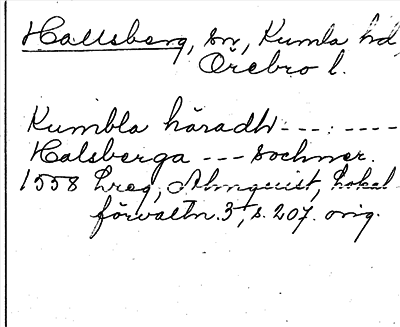 Hallsberg, sn, Kumla hd
Örebro l.
Kumbla häradh - - - : - - - -
Halsberga - - - Sochner.
1558 Lreg, Almquist, Lokal
förvaltn. 3, s. 207. orig.